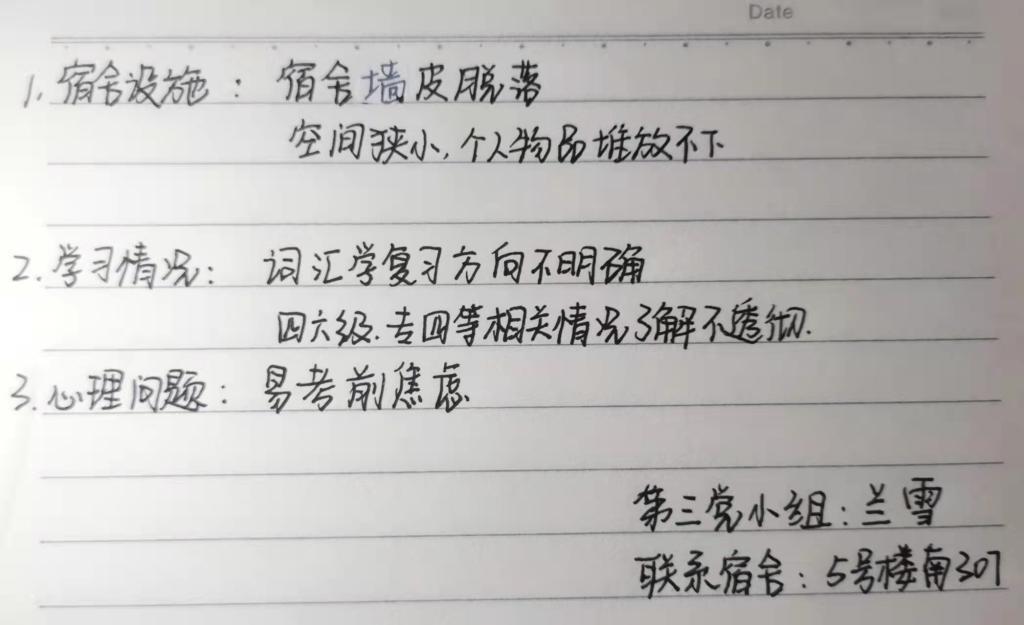 Date
1. 宿舍设施: 宿舍墙皮脱落
空间狭小,个人物品堆放不下
2. 学习情况: 词汇学复习方向不明确
四六级.专四等相关情况了解不透彻.
3. 心理问题: 易考前焦虑
第三党小组:兰雪
联系宿舍:5号楼南307